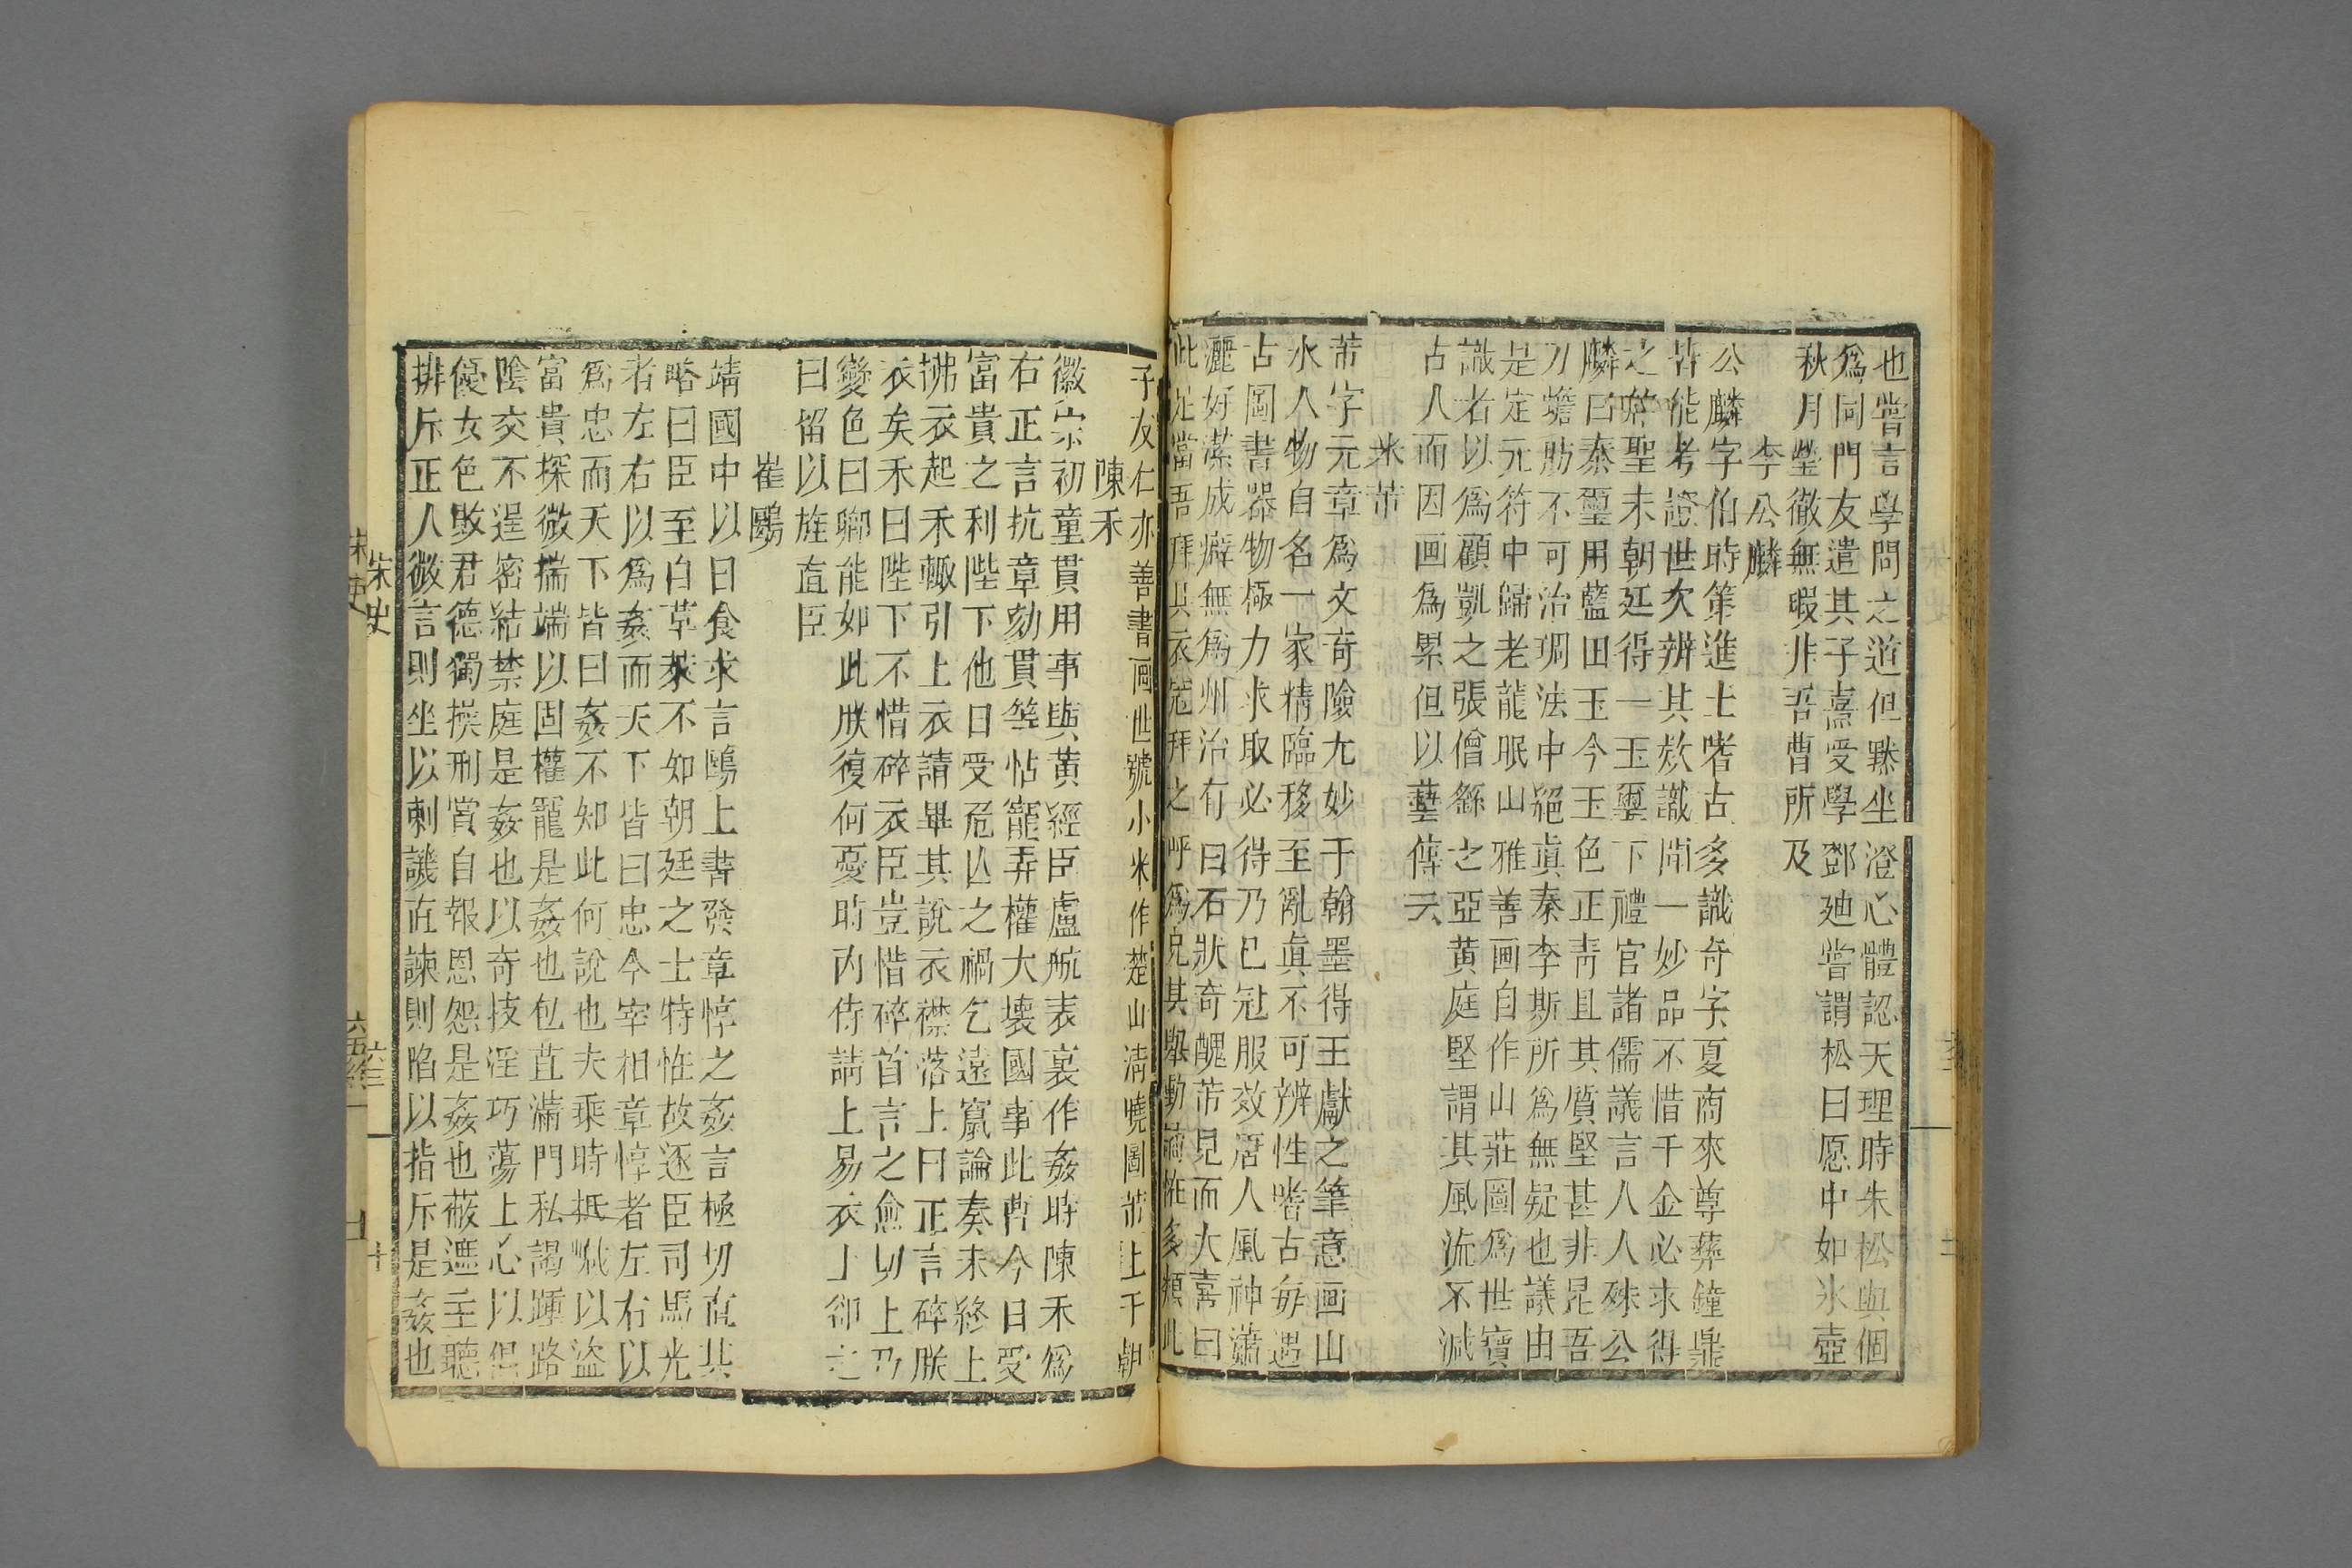 也嘗言學問之道但黙坐澄心體認天理時朱松與個
爲同門友遣其子熹受學鄧廸嘗謂松曰愿中如氷壺
秋月瑩徹無暇非吾曹所及
李公麟
公麟字伯時第進士嗜古多識奇字夏商來尊彝鐘鼎
皆能考證世次辨其欵識聞一妙品不惜千金必求得
之紹聖末朝廷得一玉璽下禮官諸儒議言人人殊公
麟曰秦璽用藍田玉今玉色正靑且其質堅甚非昆吾
刀蟾肪不可治琱法中絕眞秦李斯所爲無疑也議由
是定元符中歸老龍眠山雅善画自作山莊圖爲世寶
識者以爲顧凱之張僧繇之亞黄庭堅謂其風流不減
古人而因画爲累但以藝傳云
米芾
芾字元章爲文奇險尢妙于翰墨得王獻之筆意画山
水人物自名一家精臨移至亂眞不可辨性嗜古毎遇
古圖書器物極力求取必得乃已冠服效唐人風神蕭
灑好潔成癖無爲州治有曰石狀奇醜芾見而大喜曰
此足當吾拜具衣冠拜之呼爲兄其舉動譎怪多類此
子友仁亦善書画世號小米作楚山淸曉圖芾上于朝
陳禾
徽宗初童貫用事與黄經臣盧航表裏作姦時陳禾爲
右正言抗章劾貫等怙寵弄權大壊國事此曹今日受
富貴之利陛下他日受危亾之禍乞遠竄論奏未終上
拂衣起禾輙引上衣請畢其說衣襟落上曰正言碎朕
衣矣禾曰陛下不惜碎衣臣豈惜碎首言之愈切上乃
變色曰卿能如此朕復何憂時内侍請上易衣上卻之
曰留以旌直臣
崔鷗
靖國中以日食求言鷗上書發章惇之姦言極切直其
略曰臣至自草萊不如朝廷之士特怪故逐臣司馬光
者左右以爲姦而天下皆曰忠今宰相章惇者左右以
爲忠而天下皆曰姦不知此何說也夫乘時抵巇以盜
富貴探微揣端以固權寵是姦也苞苴滿門私謁踵路
陰交不逞密結禁庭是姦也以奇技淫巧蕩上心以倡
優女色敗君德獨操刑賞自報恩怨是姦也蔽遮主聽
排斥正人微言則坐以刺譏直諫則陷以指斥是姦也
宋史